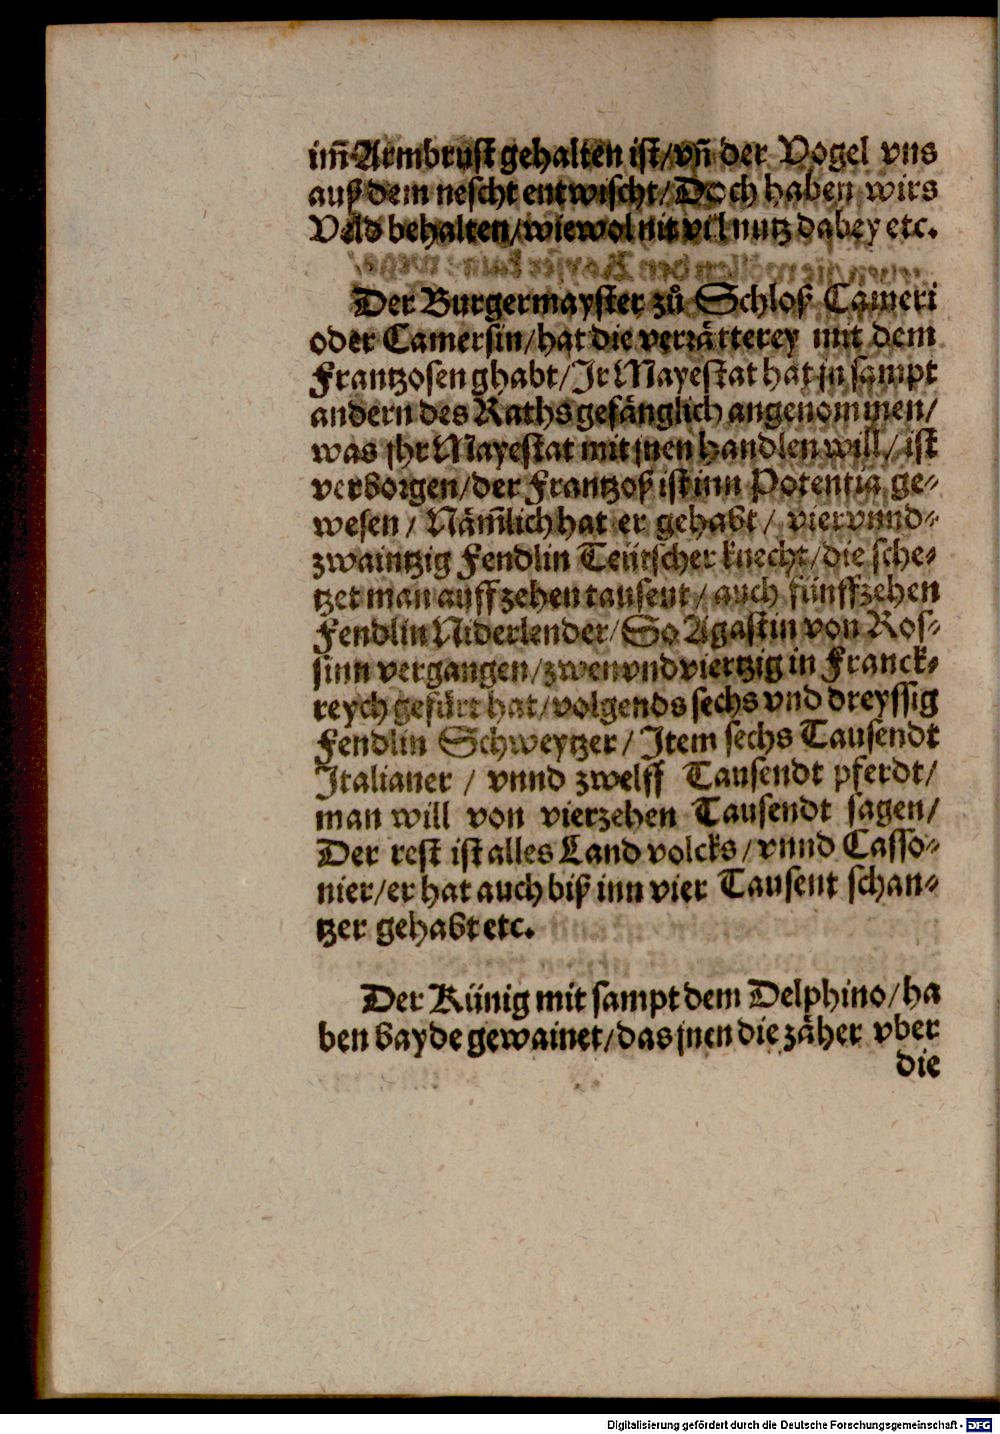 im̃ Armbrust gehalten ist/vñ der Vogel vns
auß dem nescht entwischt/Doch haben wirs
Veld behalten/wiewol nit vil nutz dabey etc.
Der Burgermayster zů Schloß Cameri
oder Camersin/hat die verrätterey mit dem
Frantzosen ghabt/Ir Mayestat hat jn sampt
andern des Raths gefänglich angenommen/
was jhr Mayestat mit jnen handlen will/ist
verborgen/der Frantzoß ist inn Potentia ge-
wesen/Näm̃lich hat er gehabt/vier vnnd-
zwaintzig Fendlin Teütscher knecht/die sche-
tzet man auff zehen tausent/auch fünffzehen
Fendlin Niderlender/So Agastin von Ros-
sinn vergangen/zwen vnd viertzig in Franck-
reych gefürt hat/volgends sechs vnd dreyssig
Fendlin Schweytzer/Item sechs Tausendt
Italianer/vnnd zwelff Tausendt pferdt/
man will von vierzehen Tausendt sagen/
Der rest ist alles Land volcks/vnnd Casso-
nier/er hat auch biß inn vier Tausent schan-
tzer gehabt etc.
Der Künig mit sampt dem Delphino/ha
ben bayde gewainet/das jnen die zäher vber
die
Digitalisierung gefördert durch die Deutsche Forschungsgemeinschaft - DFG